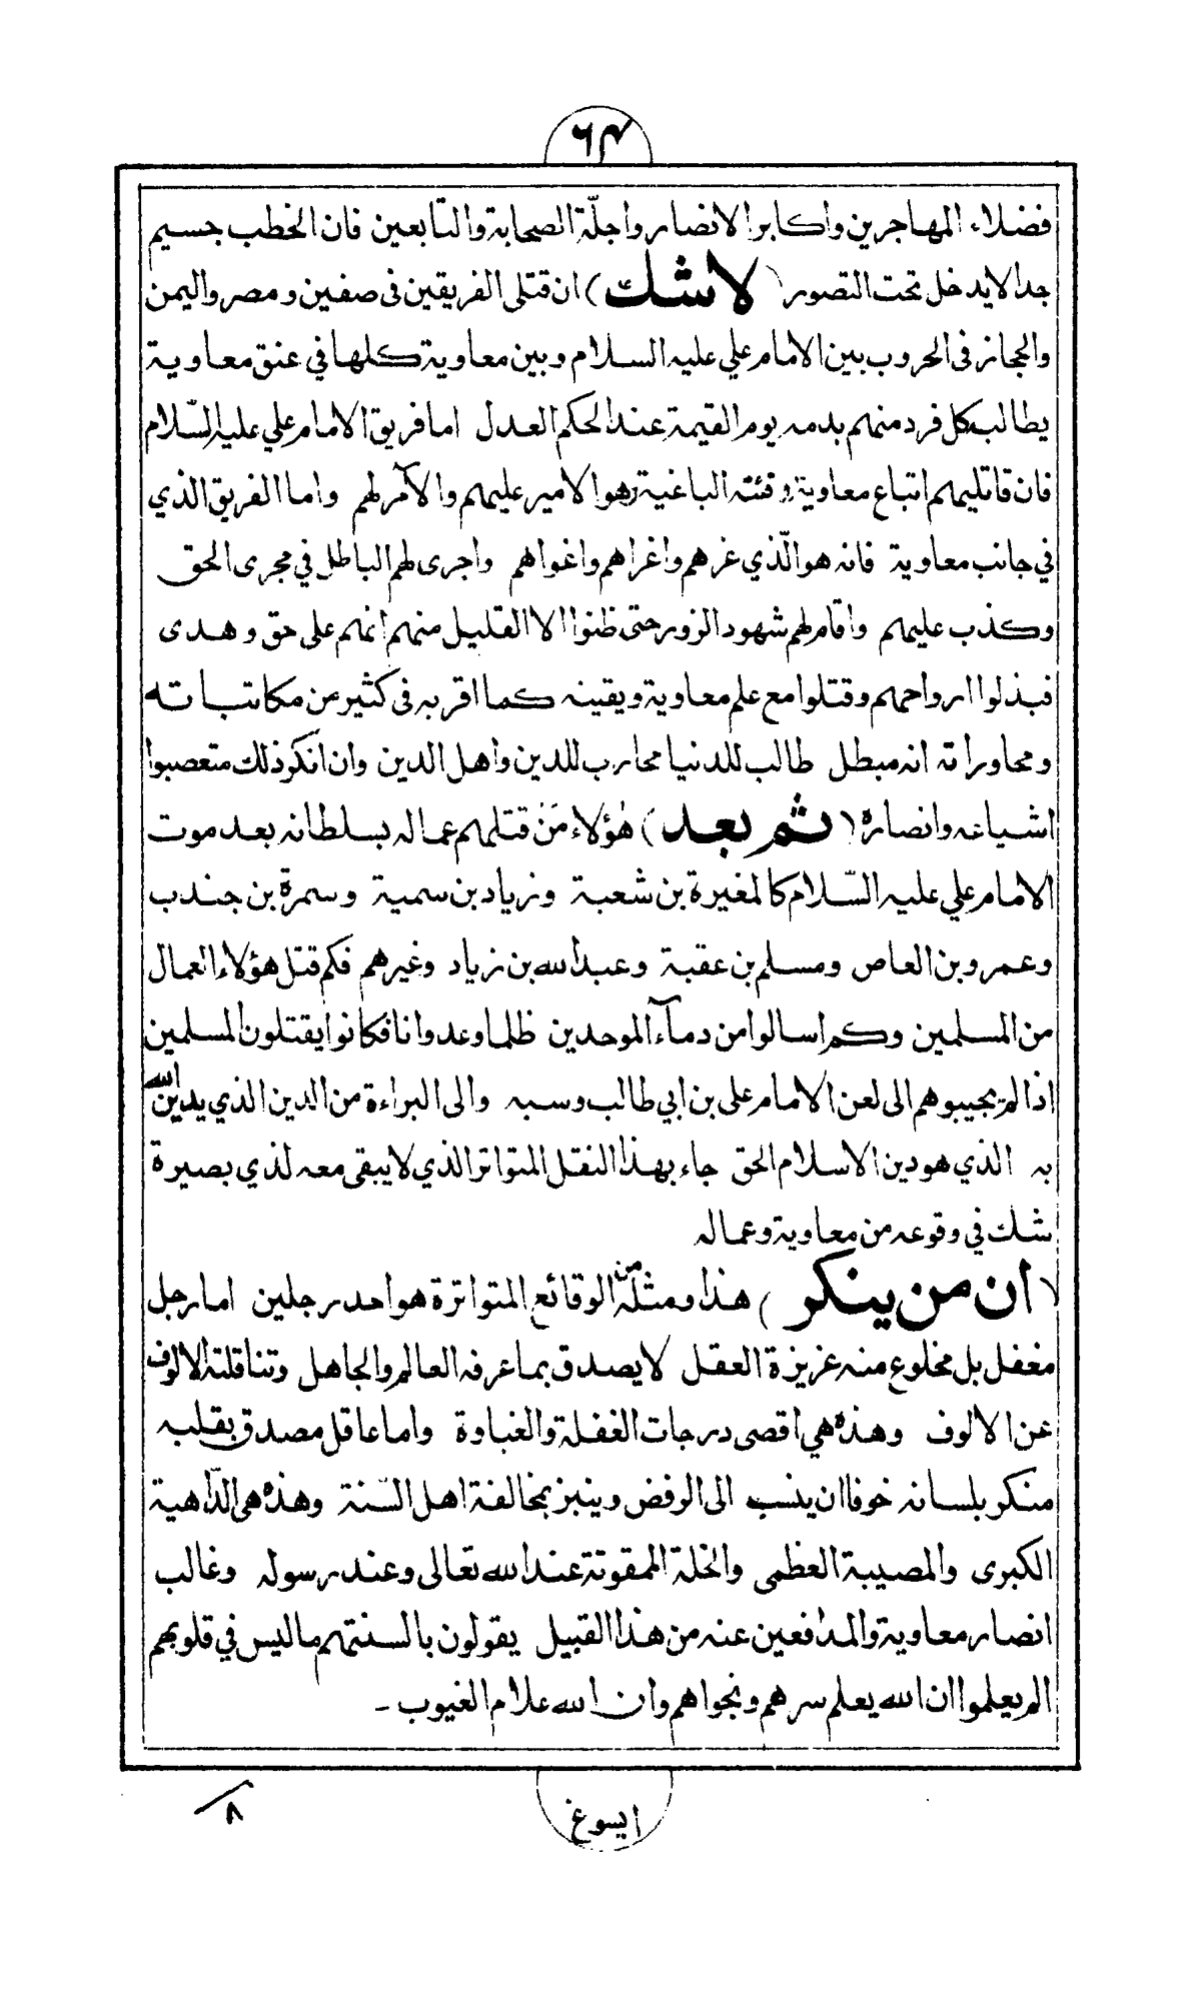 ٦٤
فضلاء المهاجرين واكابر الانصار واجلّة الصحابة والتابعين فان الخطب جسيم
جدا لا يدخل تحت التصور (لا شك) ان قتلى الفريقين فى صفين ومصر واليمن
والحجاز فى الحروب بين الامام علي عليه السلام وبين معاوية كلها في عنق معاوية
يطالب كل فرد منهم بدمه يوم القيمة عند الحكم العدل اما فريق الامام علي عليه السّلام
فان قاتليهم اتباع معاوية وفئته الباغية وهو الامير عليهم والآمر لهم واما الفريق الذي
في جانب معاوية فانه هو الّذي غرهم واغراهم واغواهم واجرى لهم الباطل في مجرى الحق
وكذب عليهم واقام لهم شهود الزور حتى ظنوا الا القليل منهم انهم على حق وهدى
فبذلوا ارواحهم وقتلوا مع علم معاوية ويقينه كما اقر به فى كثير من مكاتباته
ومحاوراته انه مبطل طالب للدنيا محارب للدين واهل الدين وان انكر ذلك متعصبوا
اشياعه وانصاره (ثم بعد) هٰؤلاء مَنْ قتلهم عماله بسلطانه بعد موت
الامام علي عليه السّلام كالمغيرة بن شعبة وزياد بن سمية وسمرة بن جندب
وعمرو بن العاص ومسلم بن عقبة وعبد الله بن زياد وغيرهم فكم قتل هؤلاء العمال
من المسلمين وكم اسالوا من دمآء الموحدين ظلما وعدوانا فكانوا يقتلون المسلمين
اذا لم يجيبوهم الى لعن الامام على بن ابي طالب وسبه والى البراءة من الدين الذي يدين الله
به الذي هو دين الاسلام الحق جاء بهذا النقل المتواتر الذي لا يبقى معه لذي بصيرة
شك في وقوعه من معاوية وعماله
(ان من ينكر) هذا ومثله من الوقائع المتواترة هو احد رجلين اما رجل
مغفل بل مخلوع منه غريزة العقل لا يصدق بما عرفه العالم والجاهل وتناقلته الالوف
عن الالوف وهذه هي اقصى درجات الغفلة والغباوة واما عاقل مصدق بقلبه
منكر بلسانه خوفا ان ينسب الى الرفض وينبز بمخالفة اهل السّنة وهذه هى الدّاهية
الكبرى والمصيبة العظمى والخلة الممقوتة عند الله تعالى وعند رسوله وغالب
انصار معاوية والمدافعين عنه من هذا القبيل يقولون بالسنتهم ما ليس في قلوبهم
الم يعلموا ان الله يعلم سرهم ونجواهم وان الله علام الغيوب -
ايسوغ
٨